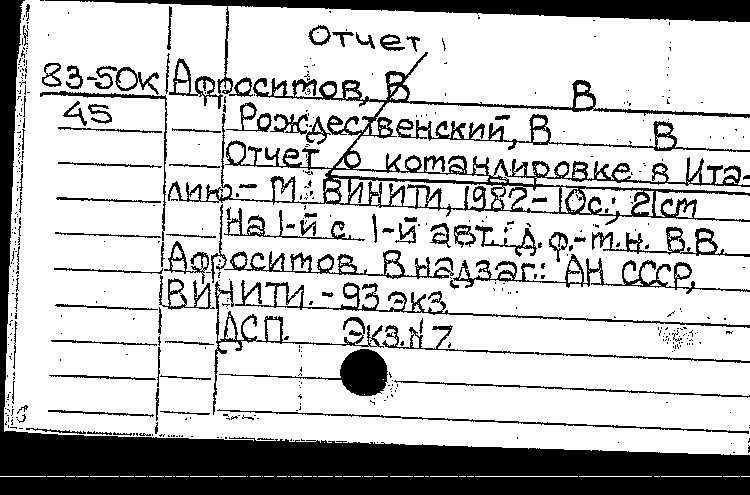 Отчет
83-50к Афроситов, В В
45 Рождественский, В В
Отчет о командировке в Ита-
лию.- М.: ВИНИТИ, 1982.- 10с.; 21ст
На 1-й с. 1-й авт.: д.ф.-т.н. В.В.
Афроситов. В надзаг.: АН СССР,
ВИНИТИ. - 93 экз.
ДСП. Экз.N 7.